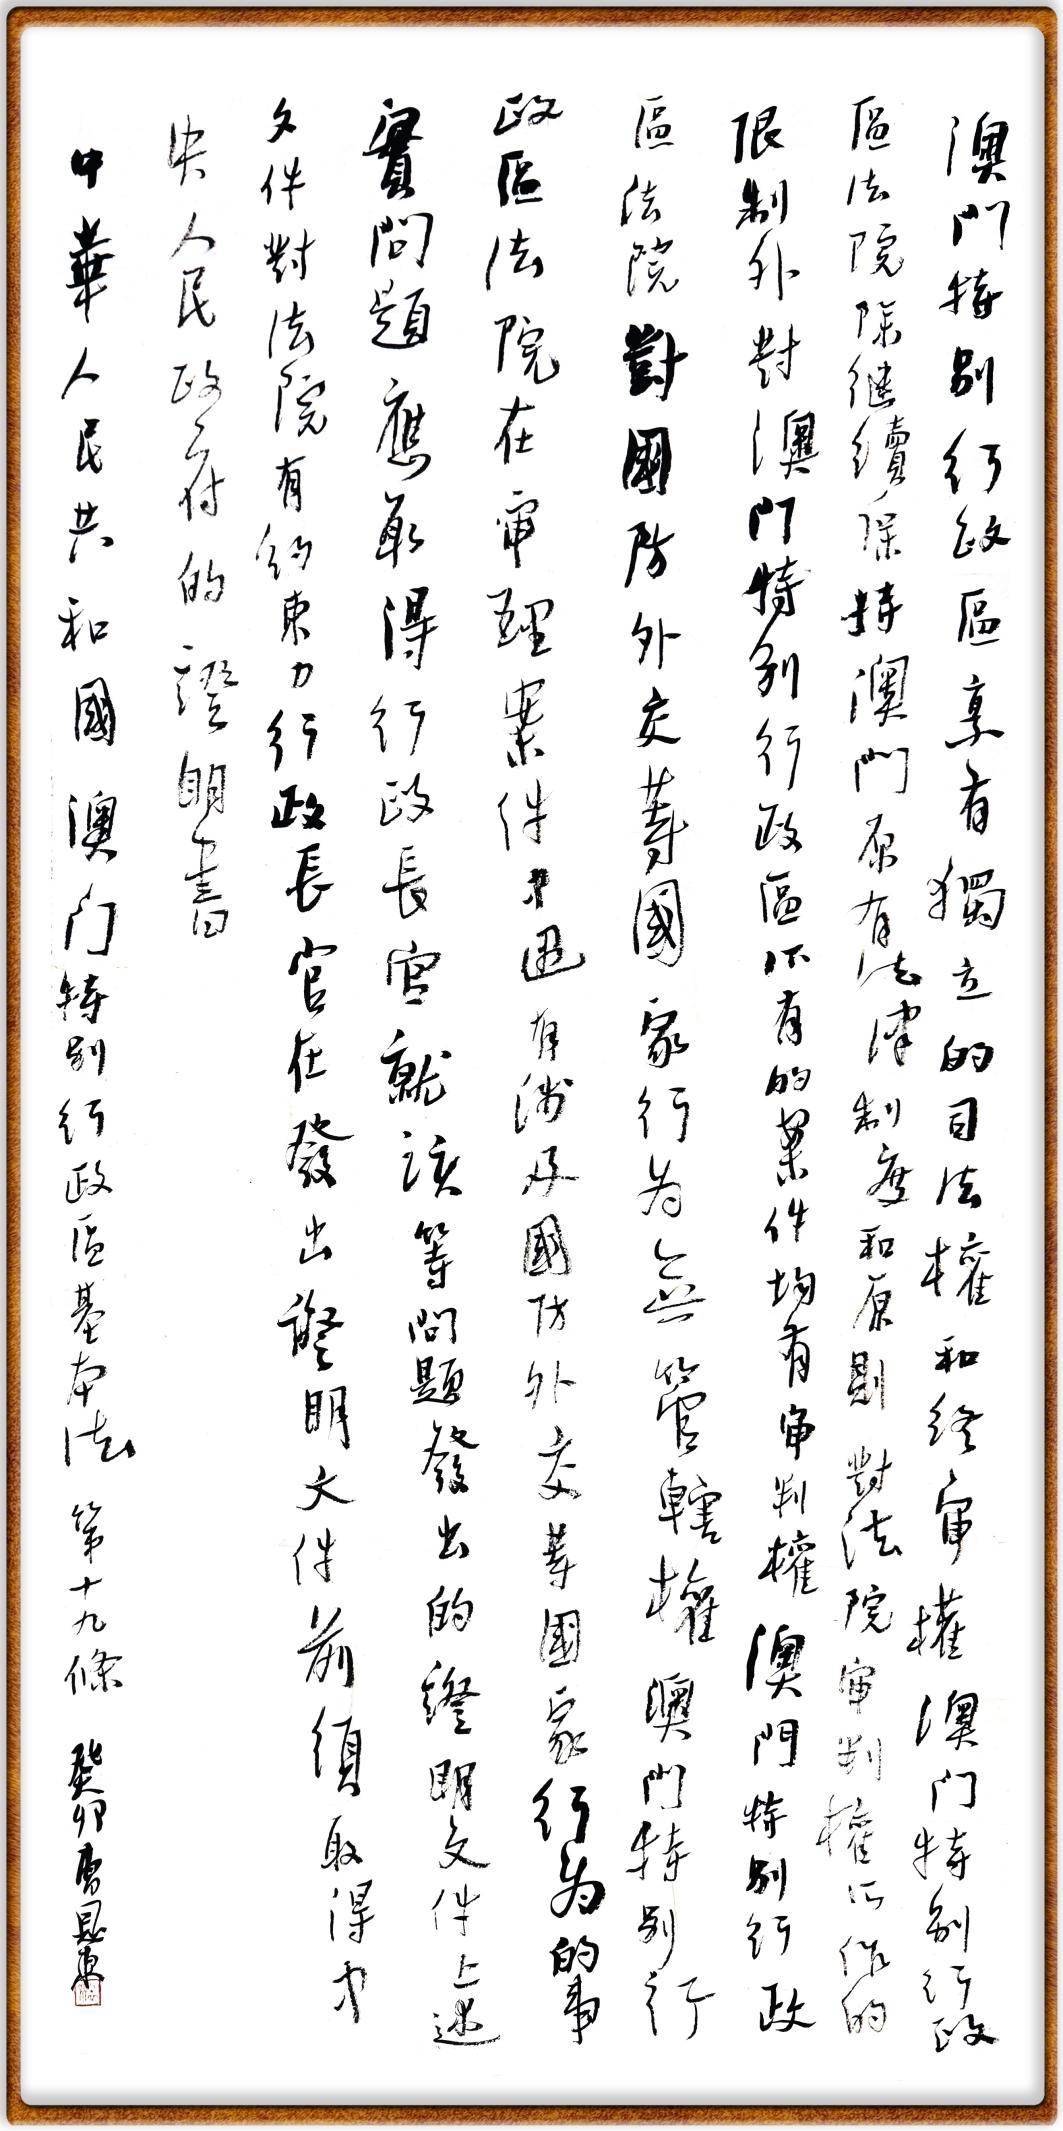 澳門特別行政區享有獨立的司法權和終审權澳門特別行政
區法院除继續保持澳門原有法律制度和原則對法院审判權所作的
限制外對澳門特別行政區所有的案件均有审判權澳門特別行政
區法院對國防外交等國家行为無管轄權澳門特別行
政區法院在审理案件中遇有涉及國防外交等國家行为的事
實問題應取得行政長官就該等問題發出的證明文件上述
文件對法院有約束力行政長官在發出證明文件前須取得中
央人民政府的證明書
中華人民共和國澳门特別行政區基本法 第十九條 癸卯